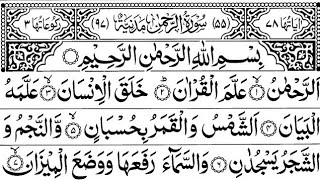 اٰیَاتُهَا ۷۸ (۵۵) سُوْرَةُ الرَّحْمٰنِ مَدَنِیَّةٌ (۹۷) رُكُوْعَاتُهَا ۳
بِسْمِ اللّٰهِ الرَّحْمٰنِ الرَّحِیْمِ
اَلرَّحْمٰنُ ۝۱ عَلَّمَ الْقُرْاٰنَ ۝۲ خَلَقَ الْاِنْسَانَ ۝۳ عَلَّمَهُ
الْبَیَانَ ۝۴ اَلشَّمْسُ وَ الْقَمَرُ بِحُسْبَانٍ ۝۵ وَّ النَّجْمُ وَ
الشَّجَرُ یَسْجُدٰنِ ۝۶ وَ السَّمَآءَ رَفَعَهَا وَ وَضَعَ الْمِیْزَانَ ۝۷